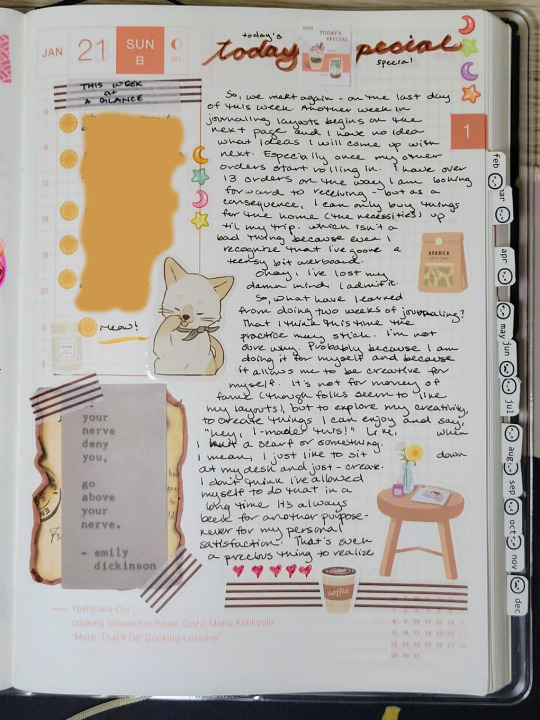 JAN 21 SUN 日 021
today's
today special
TODAY'S SPECIAL
special
THIS WEEK
at
A GLANCE
So, we meet again - on the last day
of this week. Another week in
journaling layouts begins on the
next page and I have no idea
what ideas I will come up with
next. Especially once my other
orders start rolling in. I have over
13 orders on the way I am looking
forward to receiving - but as a
consequence, I can only buy things
for the home (the necessities) up
til my trip. Which isn't a
bad thing because even I
recognize that I've gone a
teensy bit overboard.
Okay, I've lost my
damn mind I admit it.
So, what have I learned
from doing two weeks of journaling?
That I think this time the
practice may stick. I'm not
sure why. Probably because I am
doing it for myself and because
it allows me to be creative for
myself. It's not for money or
fame (though folks seem to like
my layouts), but to explore my creativity,
to create things I can enjoy and say,
"hey, I made this!" Like, when
I knit a scarf or something.
I mean, I just like to sit down
at my desk and just - create.
I don't think I've allowed
myself to do that in a
long time. It's always
been for another purpose -
never for my personal
satisfaction. That's such
a precious thing to realize
Meow!
ARABICA
your
nerve
deny
you,
go
above
your
nerve.
- emily
dickinson
coffee
Yoshiharu Doi
cooking researcher/head, Oishii Mono Kenkyujo
"More 'That'll Do' Cooking Lessons"
1
feb
mar
apr
may
jun
jul
aug
sep
oct
nov
dec